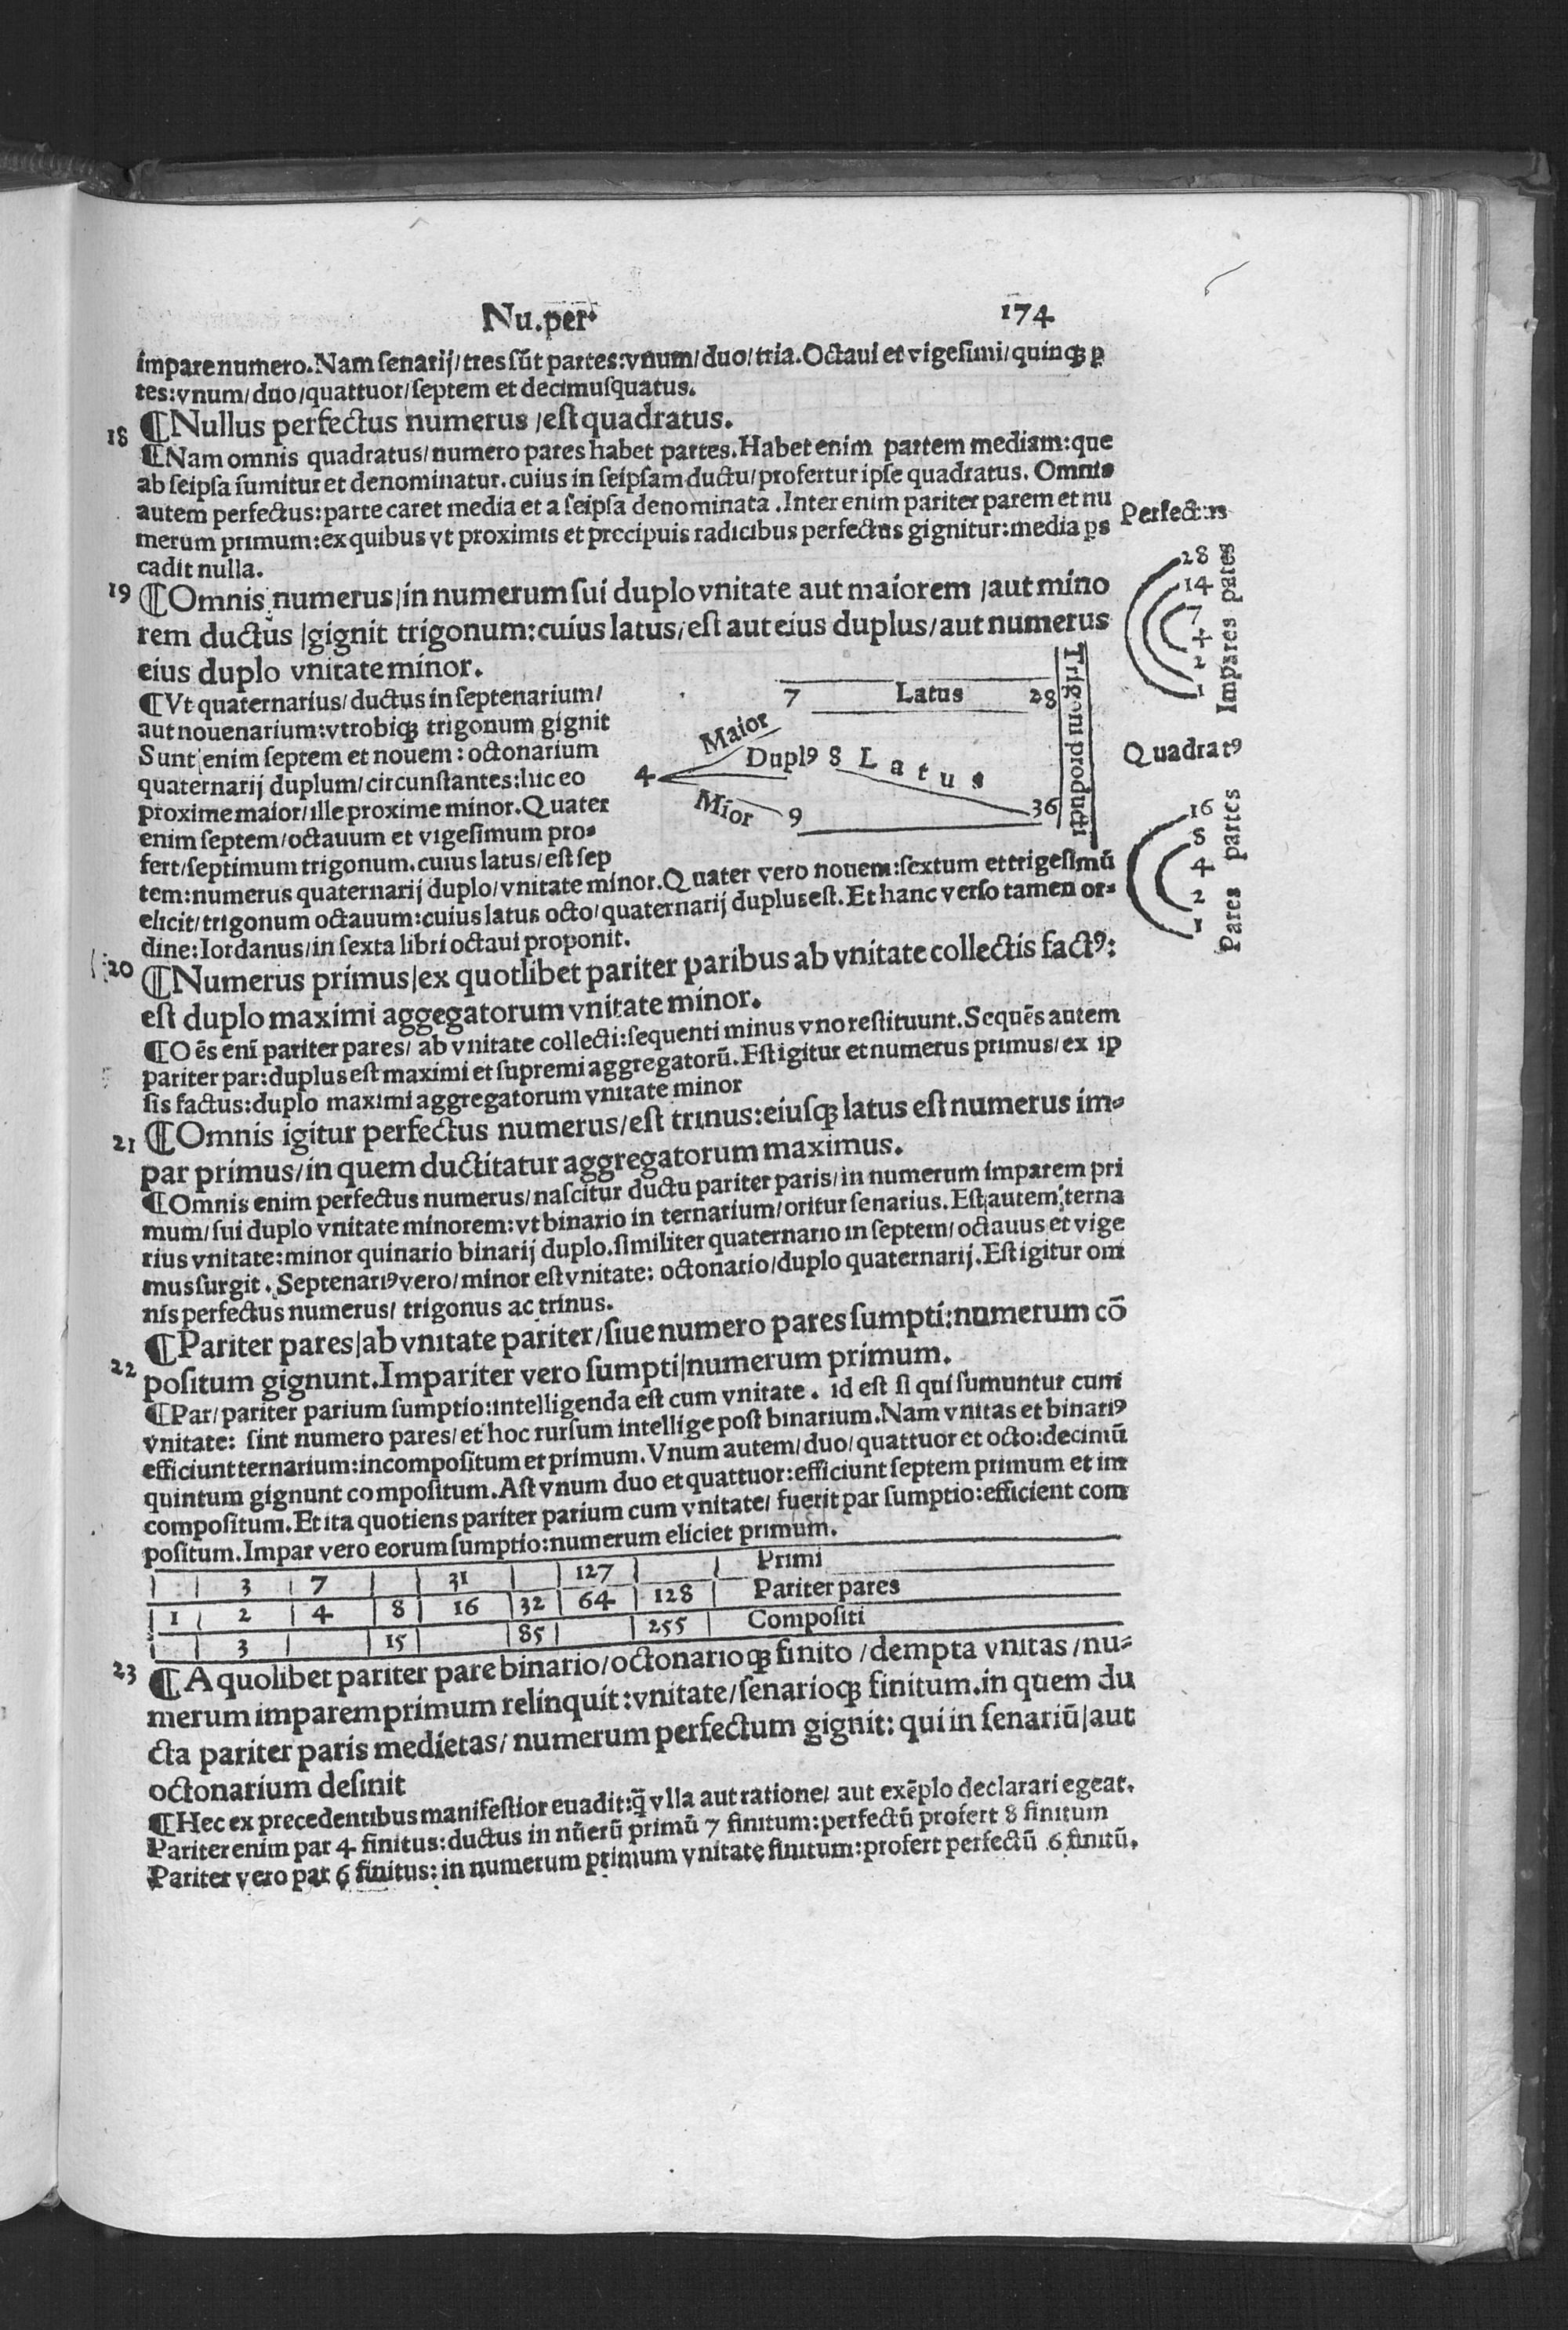 Nu.per. 174
impare numero. Nam senarij/ tres sūt partes: vnum/ duo/ tria. Octaui et vigesimi/ quinqꝫ ꝑ
tes: vnum/ duo/ quattuor/ septem et decimusquatus.
18 ¶Nullus perfectus numerus /est quadratus.
¶Nam omnis quadratus/ numero pares habet partes. Habet enim partem mediam: que
ab seipsa sumitur et denominatur. cuius in seipsam ductu/ profertur ipse quadratus. Omnis
autem perfectus: parte caret media et a seipsa denominata. Inter enim pariter parem et nu
merum primum: ex quibus vt proximis et precipuis radicibus perfectus gignitur: media ꝑs
cadit nulla.
19 ¶Omnis numerus/ in numerum sui duplo vnitate aut maiorem /aut mino
rem ductus /gignit trigonum: cuius latus/ est aut eius duplus/ aut numerus
eius duplo vnitate minor.
¶Vt quaternarius/ ductus in septenarium/
aut nouenarium: vtrobiqꝫ trigonum gignit
Sunt enim septem et nouem: octonarium
quaternarij duplum/ circunstantes: hic eo
proxime maior/ ille proxime minor. Quater
enim septem/ octauum et vigesimum pro-
fert/ septimum trigonum. cuius latus/ est sep
tem: numerus quaternarij duplo/ vnitate minor. Quater vero nouem: sextum et trigesimū
elicit/ trigonum octauum: cuius latus octo/ quaternarij duplus est. Et hanc verso tamen or-
dine: Iordanus/ in sexta libri octaui proponit.
7 Latus 28
Maior
4 Duplꝰ 8 Latus
Mior 9 36
Trigoni producti
Perfectus
28
14
7
4
2
1
Impares partes
Quadratꝰ
16
8
4
2
1
Pares partes
20 ¶Numerus primus/ ex quotlibet pariter paribus ab vnitate collectis factꝰ:
est duplo maximi aggegatorum vnitate minor.
¶Oēs enī pariter pares/ ab vnitate collecti: sequenti minus vno restituunt. Sequēs autem
pariter par: duplus est maximi et supremi aggregatorū. Est igitur et numerus primus/ ex ip
sis factus: duplo maximi aggregatorum vnitate minor
21 ¶Omnis igitur perfectus numerus/ est trinus: eiusqꝫ latus est numerus im-
par primus/ in quem ductitatur aggregatorum maximus.
¶Omnis enim perfectus numerus/ nascitur ductu pariter paris/ in numerum imparem pri
mum/ sui duplo vnitate minorem: vt binario in ternarium/ oritur senarius. Est autem terna
rius vnitate: minor quinario binarij duplo. similiter quaternario in septem/ octauus et vige
mus surgit. Septenariꝰ vero/ minor est vnitate: octonario/ duplo quaternarij. Est igitur om
nis perfectus numerus/ trigonus ac trinus.
22 ¶Pariter pares/ ab vnitate pariter/ siue numero pares sumpti: numerum cō
positum gignunt. Impariter vero sumpti/ numerum primum.
¶Par/ pariter parium sumptio: intelligenda est cum vnitate. id est si qui sumuntur cum
vnitate: sint numero pares/ et hoc rursum intellige post binarium. Nam vnitas et binariꝰ
efficiunt ternarium: incompositum et primum. Vnum autem/ duo/ quattuor et octo: decimū
quintum gignunt compositum. Ast vnum duo et quattuor: efficiunt septem primum et in
compositum. Et ita quotiens pariter parium cum vnitate/ fuerit par sumptio: efficient com
positum. Impar vero eorum sumptio: numerum eliciet primum.
3 7 31 127 Primi
1 2 4 8 16 32 64 128 Pariter pares
3 15 85 255 Compositi
23 ¶A quolibet pariter pare binario/ octonarioqꝫ finito /dempta vnitas /nu-
merum imparem primum relinquit: vnitate/ senarioqꝫ finitum. in quem du
cta pariter paris medietas/ numerum perfectum gignit: qui in senariū/ aut
octonarium desinit
¶Hec ex precedentibus manifestior euadit: q̄ vlla aut ratione/ aut exēplo declarari egeat.
Pariter enim par 4 finitus: ductus in nūerū primū 7 finitum: perfectū profert 8 finitum
Pariter vero par 6 finitus: in numerum primum vnitate finitum: profert perfectū 6 finitū.